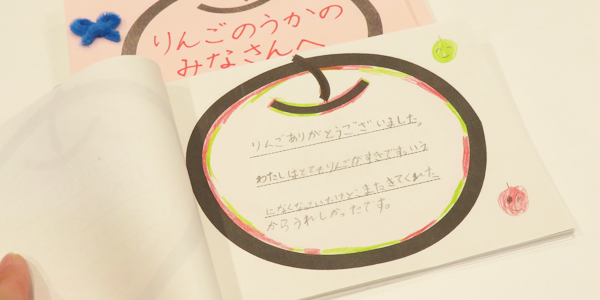 りんごのうかの
みなさんへ
りんごありがとうございました。
わたしはとてもりんごがすきです。
になくなっていたけどまたきてくれた
からうれしかったです。